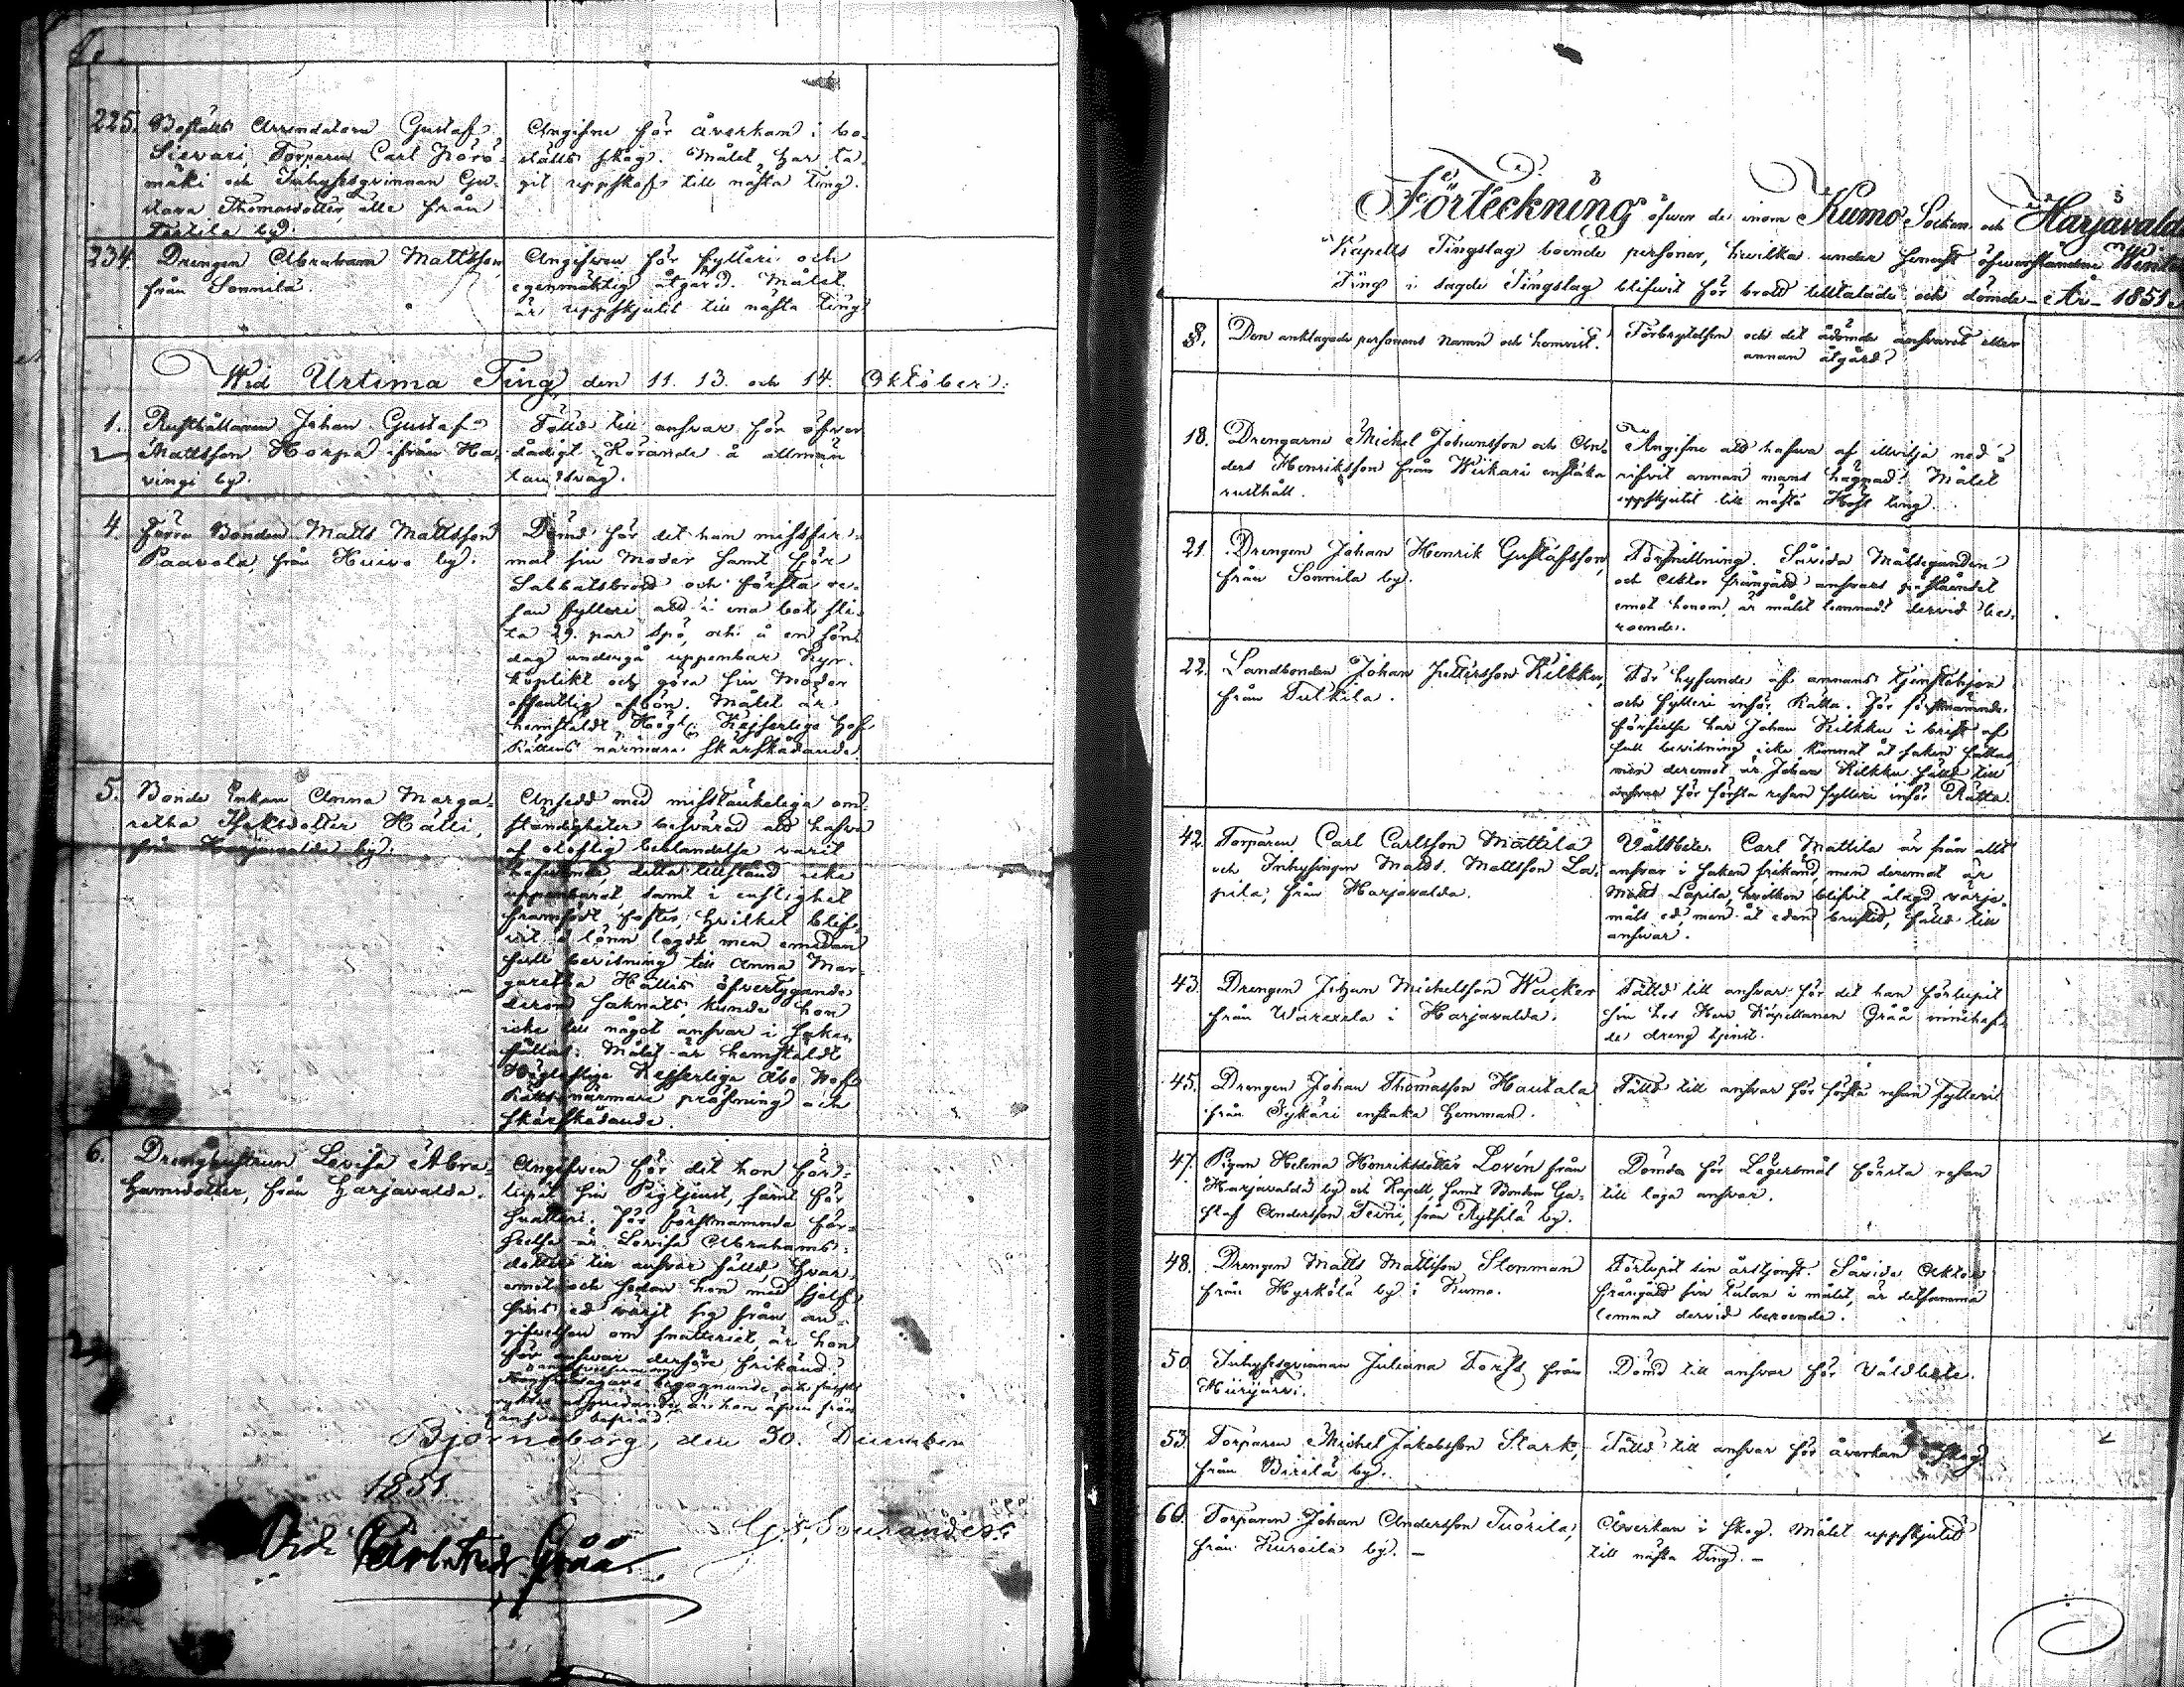 225. Boställs Arrendatorn Gustaf
Sievari, Torparen Carl Körö-
mäki och Inhysesqvinnan Gu-
stava Thomasdotter, alle från
by.
Angifne för åverkan i bo-
ställs skog. Målet har ta-
git uppskof till nästa ting.
234. Drengen Abraham Mattsson
från Sonnila.
Angifven för fylleri och
egenmäktig åtgärd. Målet
är uppskjutit till nästa ting
Wid Urtima Ting den 11. 13. och 14. Oktober.
1. Rusthållaren Johan Gustaf
Mattsson Horpa ifrån Ha-
vingi by.
Fälld till ansvar för öfver
dådigt Körande å allmän
landsväg.
4. Förra Bonden Matts Mattsson
Paavola, från Kuivo by.
Dömd för det han missfir-
mat sin Moder samt för
Sabbatsbrott och första re-
san fylleri att i ena bot sli-
ta 29. par Spö, och å en Sön-
dag undergå uppenbar Kyr-
koplikt och göra sin Moder
offentlig afbön. Målet är
hemstäldt Högl. Kejserliga Hof
Rättens närmare skärskådande.
5. Bonde Enkan Anna Marga-
retha Isaksdotter Hälli,
från Harjavalda by.
Ansedd med misstänkeliga om-
ständigheter besvärad att hafva
af oloflig beblandelse varit
hafvande, detta tillstånd icke
uppenbarat, samt i enslighet
framfödt foster, hvilket blif-
vit å lönn lagdt men emedan
full bevisning till Anna Mar-
garetha Hällis öfvertygande
derom saknats, kunde hon
icke till något ansvar i saken
fällas. Målet är hemstäldt
Höglofliga Kejserliga Åbo Hof
Rätts närmare pröfning och
skärskådande.
6. Drenghustrun Lovisa Abra-
hamsdotter, från Harjavalda.
Angifven för det hon för-
lupit sin Pigtjenst, samt för
snatteri. För förstnämnda för-
seelse är Lovisa Abrahams-
dotter till ansvar fälld, hvar-
emot och sedan hon med sjelf
sins ed värjt sig från an-
gifvelsen om snatteriet, är hon
för ansvar derföre frikänd.
begagnande och falskt
ryktes utspridande är hon äfven från
ansvar befriad.
Björneborg, den 30. December
1851.
G. S. Souranders
Vidi Carl Fred Gråå
Förteckning öfver de inom Kumo Socken och Harjavalda
Kapells Tingslag boende personer, hvilka under senast öfverståndne Winter
Ting i sagde Tingslag blifvit för brott tilltalade och dömde År 1851.
§. Den anklagade personens namn och hemvist.
Förbrytelsen och det ådömda ansvaret eller
annan åtgärd.
18. Drengarne Michel Johansson och An-
ders Henriksson från Wiikari enstaka
rusthåll.
Angifne att hafva af illvilja ned-
rifvit annan mans hägnad. Målet
uppskjutit till nästa Höst ting.
21. Drengen Johan Henrik Gustafsson,
från Sonnila by.
Försnillning. Såvida Målseganden
och Aktor frångått ansvars påståendet
emot honom, är målet lemnadt dervid be-
roende.
22. Landbonden Johan Kilkku,
från Tulkila.
För hysande af annans tjenstehjon
och fylleri inför Rätta. För förstnämnde
förseelse har Johan Kilkku i brist af
full bevisning icke kunnat åt saken fällas
men deremot är Johan Kilkku fälld till
ansvar för första resan fylleri inför Rätta.
42. Torparen Carl Carlsson Mattila
och Inhysingen Matts Mattsson La-
pila, från Harjavalda.
Våldbete. Carl Mattila är från allt
ansvar i saken frikänd, men deremot är
Matts Lapila, hvilken blifvit ålagd värje-
måls ed, men åt eden brustit, fälld till
ansvar.
43. Drengen Johan Michelsson Wacker
från i Harjavalda.
Fälld till ansvar för det han förlupit
sin hos Herr Kapellanen Gråå innehaf-
de dreng tjenst.
45. Drengen Johan Thomasson Hautala
från enstaka Hemman.
Fälld till ansvar för första resan fylleri
47. Pigan Helena Henriksdotter Lovén från
Harjavalda by och Kapell, samt Bonden Gu-
staf Andersson Teini, från by.
Dömda för Lägersmål första resan
till laga ansvar.
48. Drengen Matts Mattsson Stenman
från Hyrkölä by i Kumo.
Förlupit sin årstjenst. Såvida Aktor
frångått sin talan i målet, är detsamma
lemnat dervid beroende.
50. Inhysesqvinnan Juliana Forss från
Dömd till ansvar för Våldbete.
53. Torparen Michel Jakobsson Stark,
från by.
Fälld till ansvar för åverkan å Skog.
60. Torparen Johan Andersson Tuorila,
från Kuroila by.
Åverkan i Skog. Målet uppskjutit
till nästa Ting.